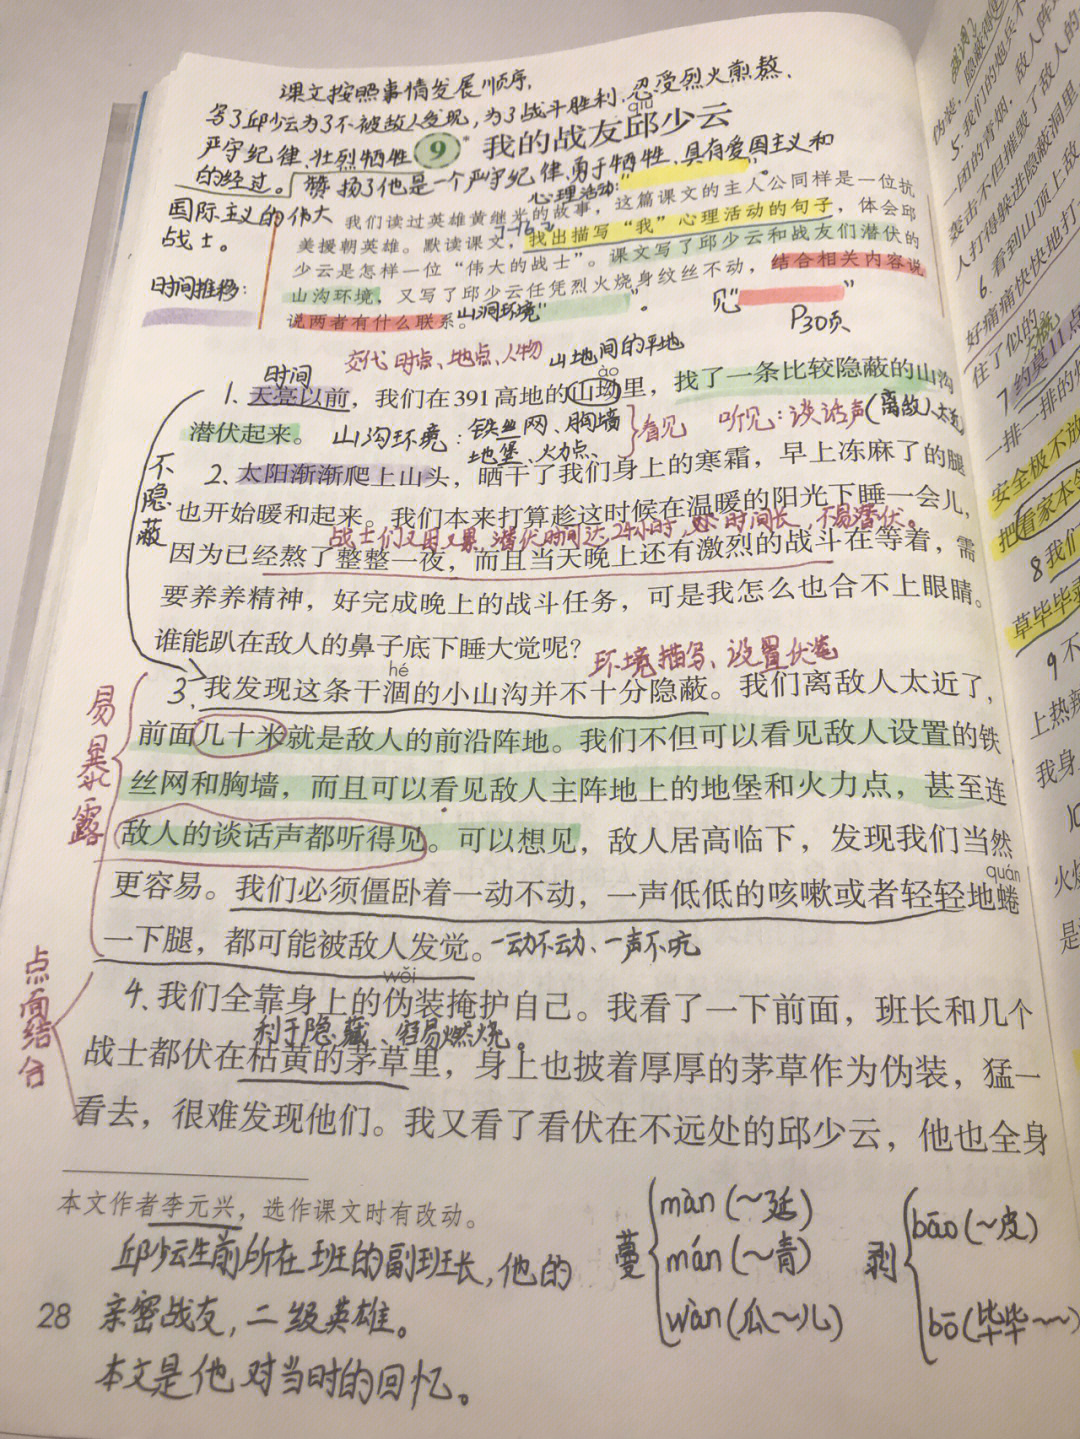 课文按照事情发展顺序,
写了邱少云为了不被敌人发现,为了战斗胜利、忍受烈火煎熬、
qiū
严守纪律、壮烈牺牲 9* 我的战友邱少云
的经过。赞扬了他是一个严守纪律、勇于牺牲、具有爱国主义和
国际主义的伟大
战士。
心理活动:“ ”
我们读过英雄黄继光的故事，这篇课文的主人公同样是一位抗
美援朝英雄。默读课文，找出描写“我”心理活动的句子，体会邱
少云是怎样一位“伟大的战士”。课文写了邱少云和战友们潜伏的
山沟环境，又写了邱少云任凭烈火烧身纹丝不动，结合相关内容说
说两者有什么联系。
时间推移:
山沟环境“ ”。
见“ ”
P30页
交代时点、地点、人物
山地间的平地
时间
ào
1、天亮以前，我们在391高地的山坳里，找了一条比较隐蔽的山沟
潜伏起来。
山沟环境:铁丝网、胸墙
地堡、火力点、
看见 听见:谈话声(离敌人太近)
不隐蔽
2、太阳渐渐爬上山头，晒干了我们身上的寒霜，早上冻麻了的腿
也开始暖和起来。我们本来打算趁这时候在温暖的阳光下睡一会儿，
战士们又困又累,潜伏时间达24小时,处时间长,不易潜伏。
因为已经熬了整整一夜，而且当天晚上还有激烈的战斗在等着，需
要养养精神，好完成晚上的战斗任务，可是我怎么也合不上眼睛。
谁能趴在敌人的鼻子底下睡大觉呢？
环境描写、设置伏笔
hé
3、我发现这条干涸的小山沟并不十分隐蔽。我们离敌人太近了，
前面几十米就是敌人的前沿阵地。我们不但可以看见敌人设置的铁
丝网和胸墙，而且可以看见敌人主阵地上的地堡和火力点，甚至连
敌人的谈话声都听得见。可以想见，敌人居高临下，发现我们当然
quán
更容易。我们必须僵卧着一动不动，一声低低的咳嗽或者轻轻地蜷
一下腿，都可能被敌人发觉。
一动不动、一声不吭
易暴露
点面结合
wěi
4、我们全靠身上的伪装掩护自己。我看了一下前面，班长和几个
利于隐藏、容易燃烧。
战士都伏在枯黄的茅草里，身上也披着厚厚的茅草作为伪装，猛一
看去，很难发现他们。我又看了看伏在不远处的邱少云，他也全身
本文作者李元兴，选作课文时有改动。
邱少云生前所在班的副班长,他的
28
亲密战友,二级英雄。
本文是他对当时的回忆。
蔓
màn(～延)
mán(～青)
wàn(瓜～儿)
剥
bāo(～皮)
bō(毕毕～～)
伪装，隐蔽得
5、我们的炮兵不
一团的青烟，敌人阵
轰击不但摧毁了敌人的
人打得躲进隐蔽洞里
6、看到山顶上敌
好痛痛快快地打
住了似的
大概
7、约莫11点
一排一排的
安全极不放
把看家本领
8、我们
草毕毕剥
9、不
上热辣
我身
10
火烧
是